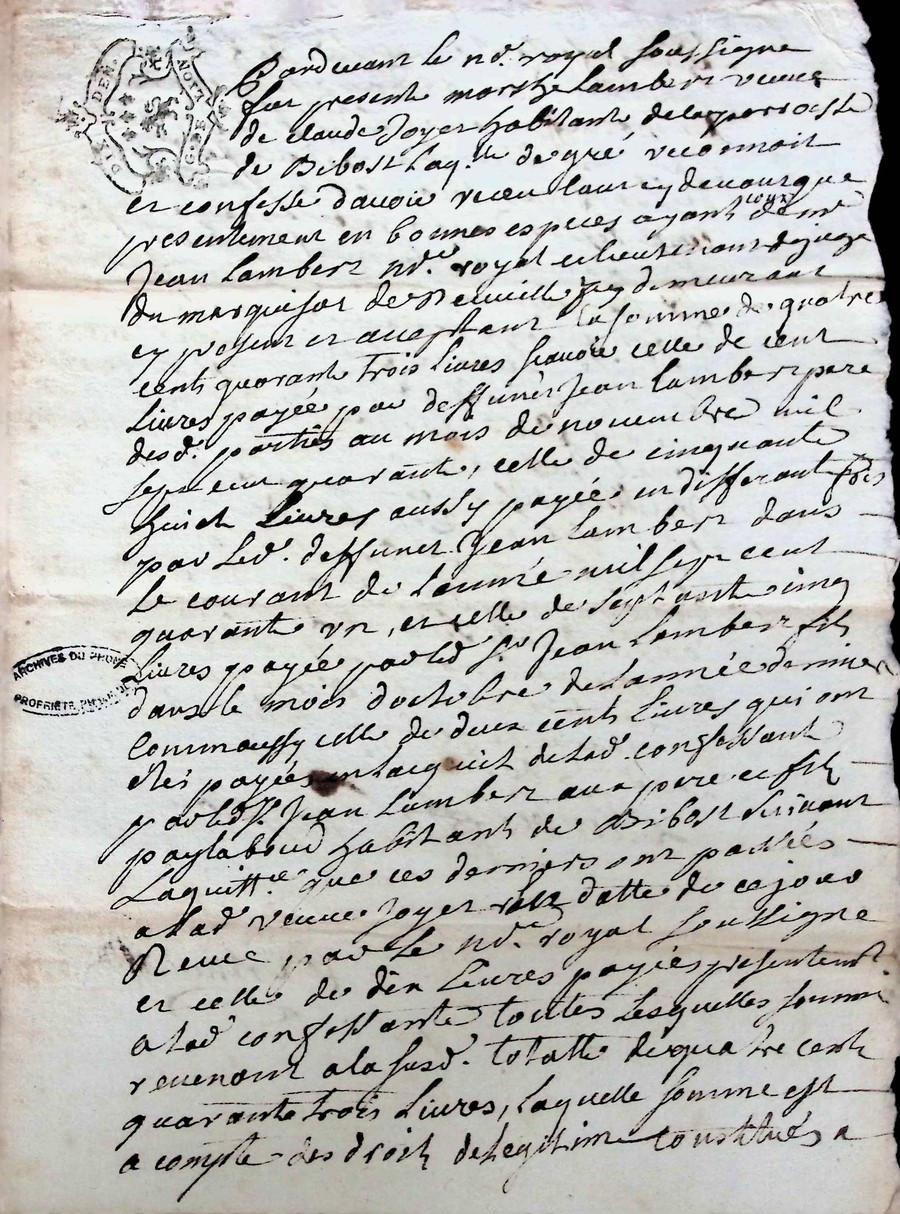 DIX DEN.
G. DE LION
Pardevant le no.re royal soussigne
fut presente marthe lambert veuve
de claude Joyet habitante de la parroisse
de Bibost laq.lle de gré reconnoit
et confesse d'avoir receu tant cy devant que
presentement en bonnes especes ayant cours de mr
Jean Lambert no.re royal et lieutenant de juge
du marquisat de demeurant
cy present et acceptant la somme de quatre
cent quarante trois livres scavoir celle de cent
Livres payée par deffunct Jean lambert pere
desd. parties au mois de novembre mil
sept cent quarante, celle de cinquante
huict Livres aussy payée en differant fois
par led. deffunct Jean Lambert dans
le courant de l'année mil sept cent
quarante un, et celle de septante cinq
Livres payée par led Sr. Jean Lambert fils
dans le mois d'octobre de l'année derniere
Comm'aussy celle de deux cents livres qui ont
étés payées en l'acquit de lad. confessante
par led. Sr. Jean Lambert aux pere et fils
paylaboud habitants de Bibost suivant
La quitt.ce que ces derniers ont passées
a lad. veuve Joyet datte de ce jour
Receue par le no.re royal soussigne
et celle de dix Livres payées presentemt.
a lad. confessante toutes lesquelles sommes
revenant a la susd. totalle de quatre cent
quarante trois Livres, laquelle somme est
a compte des droits de legitime constitués a
ARCHIVES DU RHONE
PROPRIÉTÉ PUBLIQUE